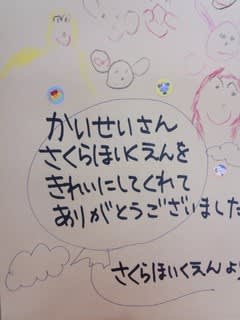 かいせいさん
さくらほいくえんを
きれいにしてくれて
ありがとうございました
さくらほいくえん より